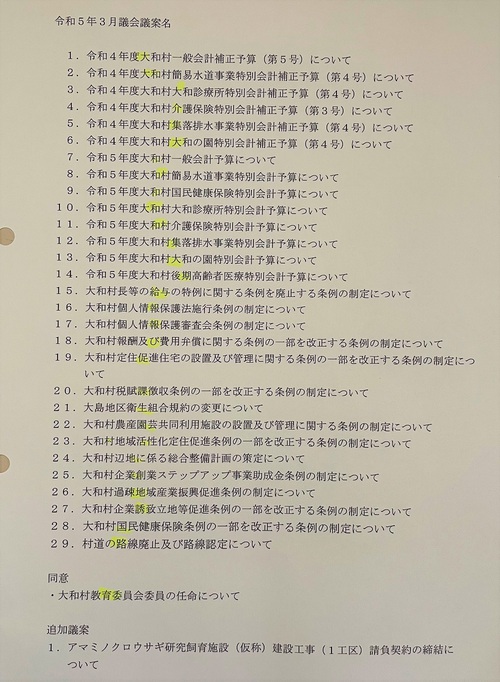 令和５年３月議会議案名
１．令和４年度大和村一般会計補正予算（第５号）について
２．令和４年度大和村簡易水道事業特別会計補正予算（第４号）について
３．令和４年度大和村大和診療所特別会計補正予算（第４号）について
４．令和４年度大和村介護保険特別会計補正予算（第３号）について
５．令和４年度大和村集落排水事業特別会計補正予算（第４号）について
６．令和４年度大和村大和の園特別会計補正予算（第４号）について
７．令和５年度大和村一般会計予算について
８．令和５年度大和村簡易水道事業特別会計予算について
９．令和５年度大和村国民健康保険特別会計予算について
１０．令和５年度大和村大和診療所特別会計予算について
１１．令和５年度大和村介護保険特別会計予算について
１２．令和５年度大和村集落排水事業特別会計予算について
１３．令和５年度大和村大和の園特別会計予算について
１４．令和５年度大和村後期高齢者医療特別会計予算について
１５．大和村長等の給与の特例に関する条例を廃止する条例の制定について
１６．大和村個人情報保護法施行条例の制定について
１７．大和村個人情報保護審査会条例の制定について
１８．大和村報酬及び費用弁償に関する条例の一部を改正する条例の制定について
１９．大和村定住促進住宅の設置及び管理に関する条例の一部を改正する条例の制定につ
いて
２０．大和村税賦課徴収条例の一部を改正する条例の制定について
２１．大島地区衛生組合規約の変更について
２２．大和村農産園芸共同利用施設の設置及び管理に関する条例の制定について
２３．大和村地域活性化定住促進条例の一部を改正する条例の制定について
２４．大和村辺地に係る総合整備計画の策定について
２５．大和村企業創業ステップアップ事業助成金条例の制定について
２６．大和村過疎地域産業振興促進条例の制定について
２７．大和村企業誘致立地等促進条例の制定について
２８．大和村国民健康保険条例の一部を改正する条例の制定について
２９．村道の路線廃止及び路線認定について
同意
・大和村教育委員会委員の任命について
追加議案
１．アマミノクロウサギ研究飼育施設（仮称）建設工事（１工区）請負契約の締結に
ついて